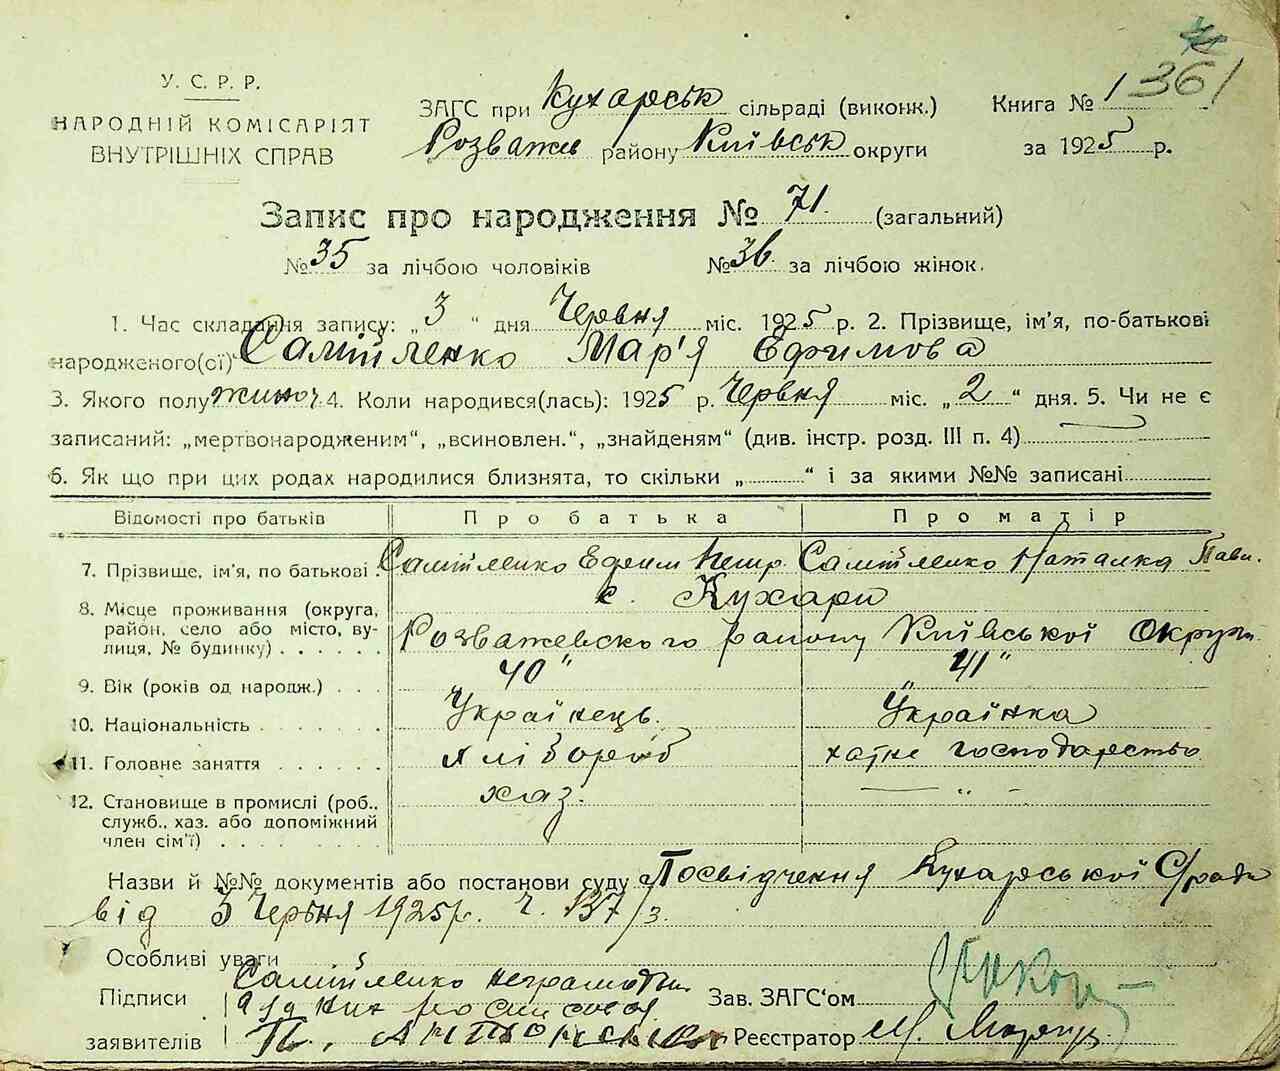 У. С. Р. Р.
НАРОДНІЙ КОМІСАРІЯТ
ВНУТРІШНІХ СПРАВ
ЗАГС при Кухарськ сільраді (виконк.) Книга № 1 361
Розважів району Київськ округи за 1925 р.
Запис про народження № 71. (загальний)
№ 35 за лічбою чоловіків № 36. за лічбою жінок.
1. Час складання запису: „3“ дня Червня міс. 1925 р. 2. Прізвище, ім'я, по-батькові
народженого(сі) Самійленко Мар'я Ефимова
3. Якого полу жиноч 4. Коли народився(лась): 1925 р. Червня міс. „2“ дня. 5. Чи не є
записаний: „мертвонародженим“, „всиновлен.“, „знайденям“ (див. інстр. розд. III п. 4)
6. Як що при цих родах народилися близнята, то скільки „ “ і за якими №№ записані
Відомості про батьків Про батька Про матір
7. Прізвище, ім'я, по батькові Самійленко Ефим Петр. Самійленко Наталка Павл.
8. Місце проживання (округа, с. Кухари
район, село або місто, ву- Розважевского району Київської Округи
лиця, № будинку)
9. Вік (років од народж.) 40" 41"
10. Національність Українець. Українка
11. Головне заняття хлібороб хатне господарство
12. Становище в промислі (роб., хаз. — „ -
служб., хаз. або допоміжний
член сім'ї)
Назви й №№ документів або постанови суду Посвідчення Кухарської С/ради
від 3 Червня 1925 р. ч. 137/3.
Особливі уваги
Підписи Самійленко неграмотн. Зав. ЗАГС'ом
заявителів Реєстратор